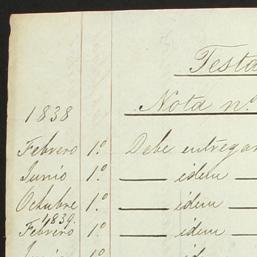 Testa
Nota n.º
1838
Febrero 1.º Debe entregar
Junio 1.º — idem —
Octubre 1.º — idem —
1839.
Febrero 1.º — idem —
Junio 1.º — id